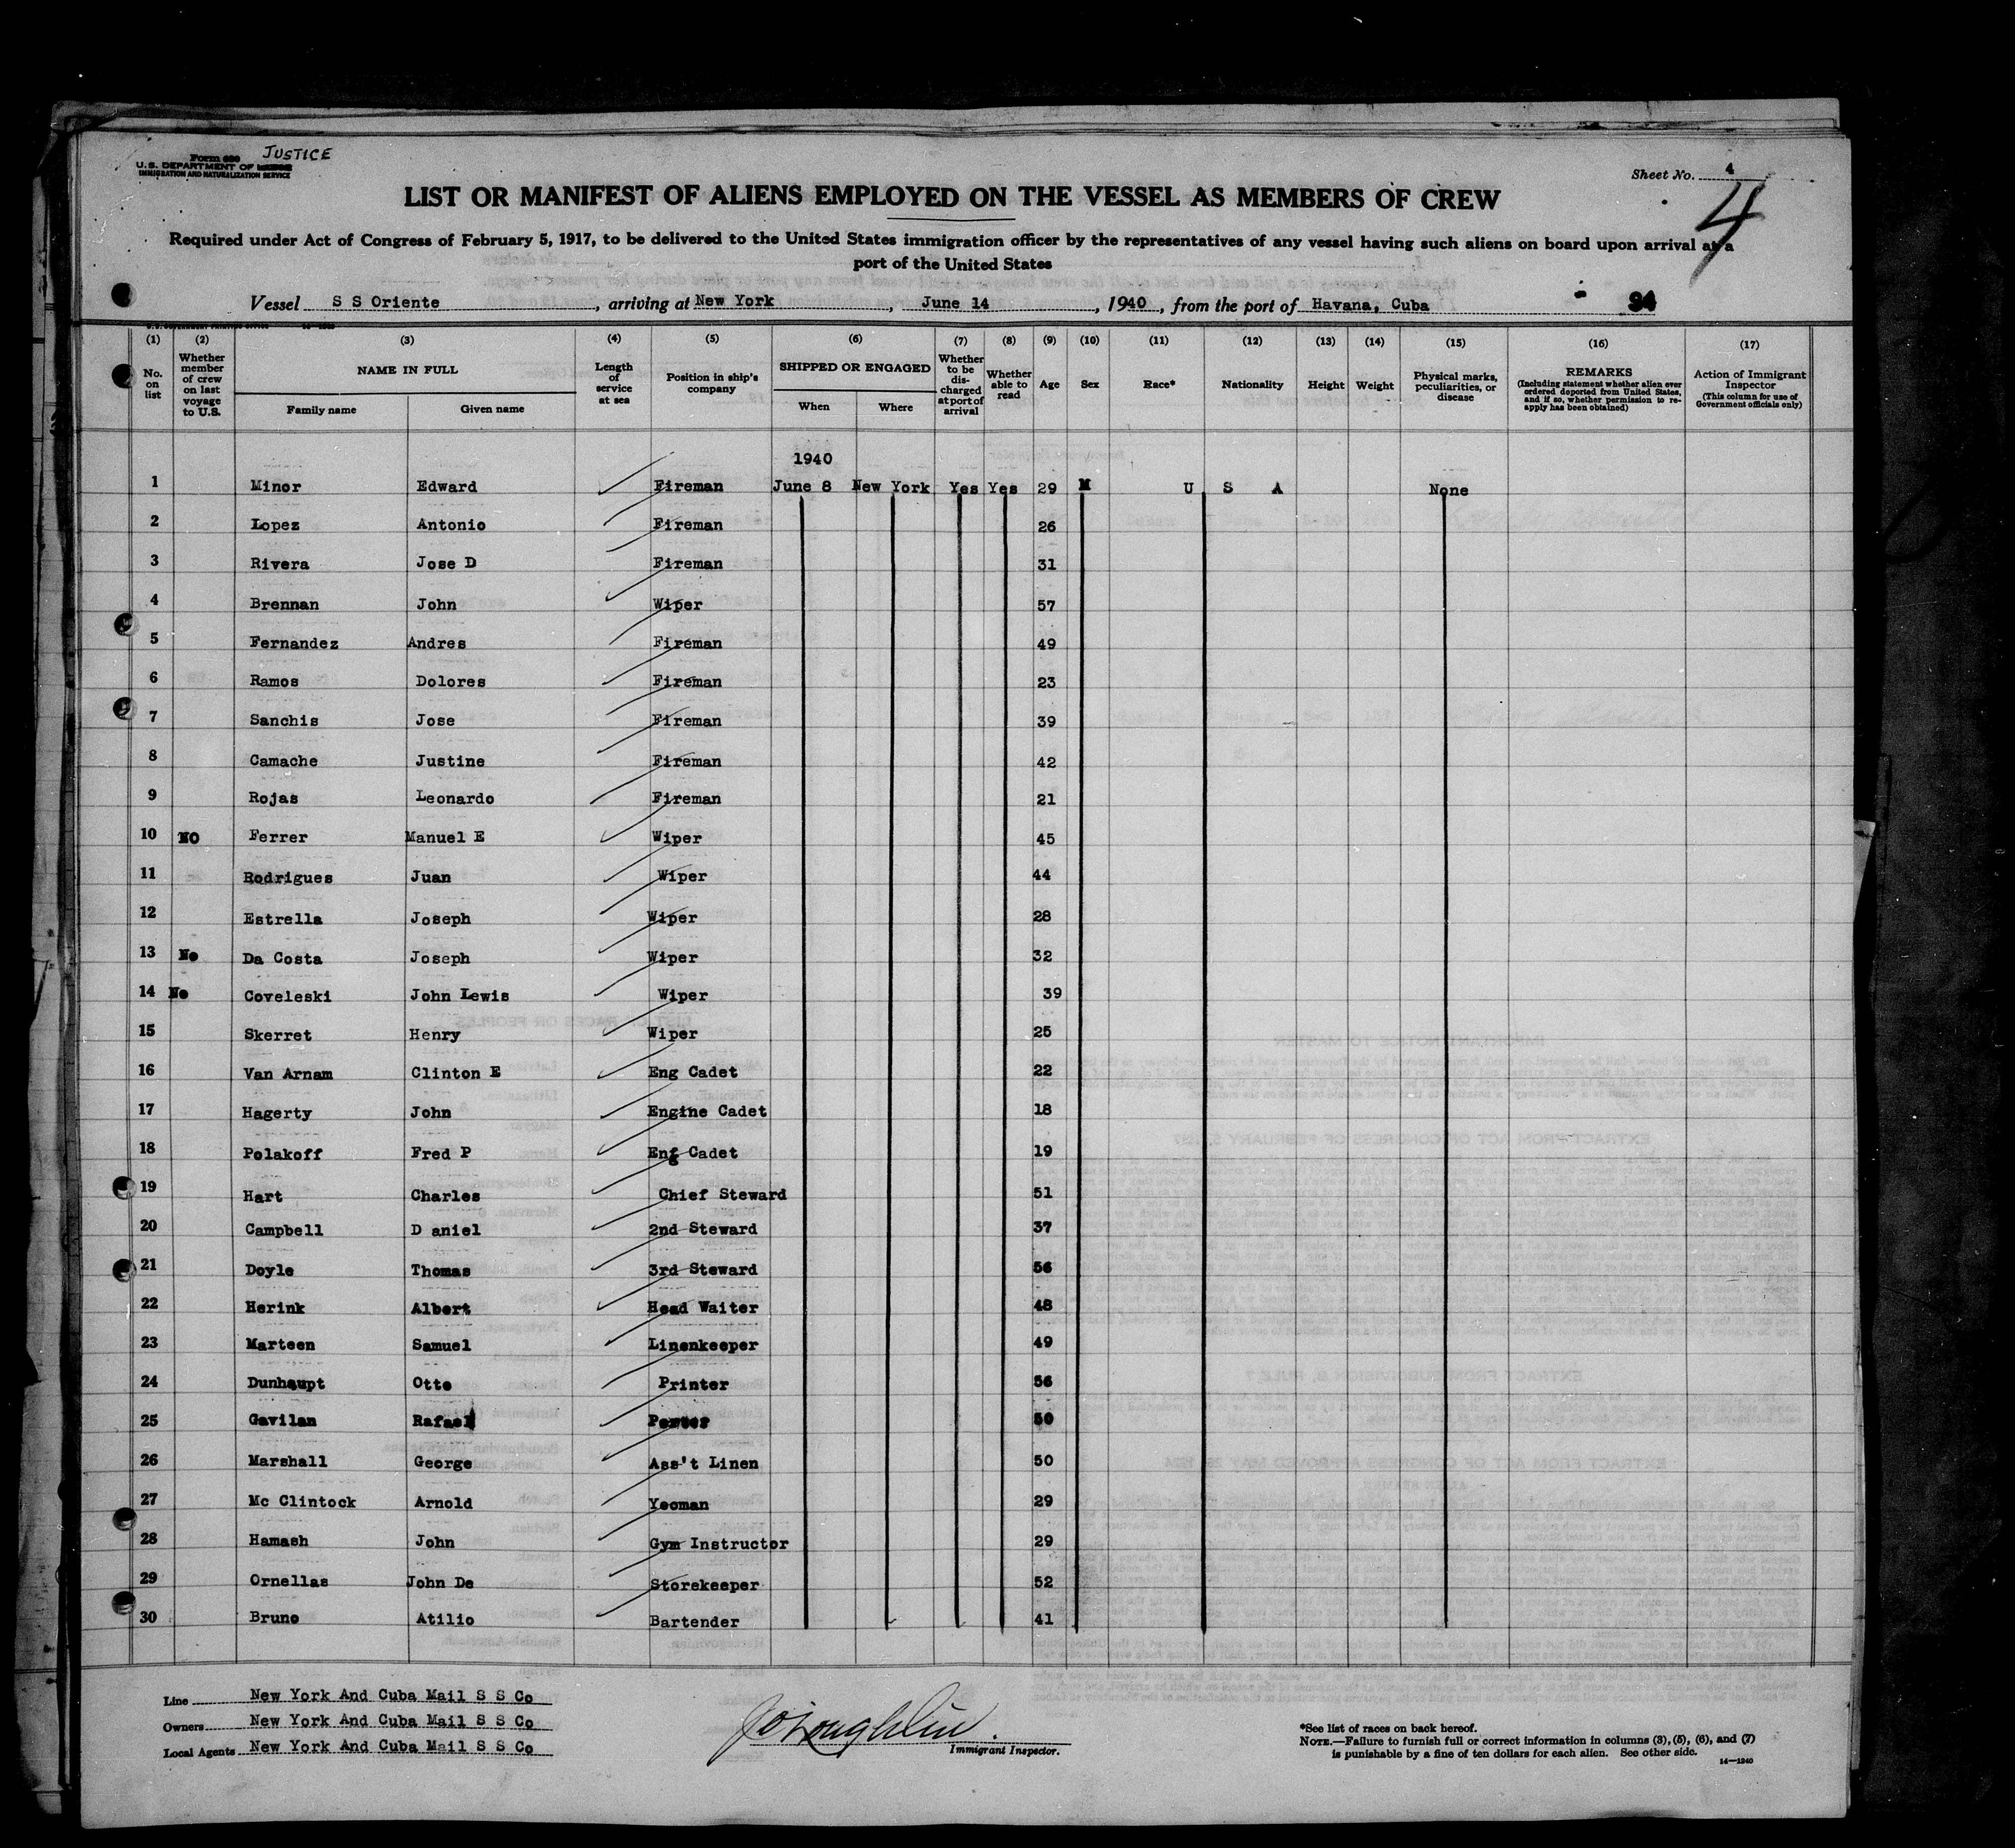 Form 680 JUSTICE
U.S. DEPARTMENT OF LABOR
IMMIGRATION AND NATURALIZATION SERVICE
Sheet No. 4
4
LIST OR MANIFEST OF ALIENS EMPLOYED ON THE VESSEL AS MEMBERS OF CREW
Required under Act of Congress of February 5, 1917, to be delivered to the United States immigration officer by the representatives of any vessel having such aliens on board upon arrival at a
port of the United States
Vessel S S Oriente, arriving at New York, June 14, 1940, from the port of Havana, Cuba 94
U.S. GOVERNMENT PRINTING OFFICE
(1) (2) (3) (4) (5) (6) (7) (8) (9) (10) (11) (12) (13) (14) (15) (16) (17)
No. on list
Whether member of crew on last voyage to U.S.
NAME IN FULL
Family name
Given name
Length of service at sea
Position in ship's company
SHIPPED OR ENGAGED
When
Where
Whether to be discharged at port of arrival
Whether able to read
Age
Sex
Race*
Nationality
Height
Weight
Physical marks, peculiarities, or disease
REMARKS
(Including statement whether alien ever ordered deported from United States, and if so, whether permission to reapply has been obtained)
Action of Immigrant Inspector
(This column for use of Government officials only)
1940
1 Minor Edward Fireman June 8 New York Yes Yes 29 M U S A None
2 Lopez Antonio Fireman 26
3 Rivera Jose D Fireman 31
4 Brennan John Wiper 57
5 Fernandez Andres Fireman 49
6 Ramos Dolores Fireman 23
7 Sanchis Jose Fireman 39
8 Camache Justine Fireman 42
9 Rojas Leonardo Fireman 21
10 NO Ferrer Manuel E Wiper 45
11 Rodrigues Juan Wiper 44
12 Estrella Joseph Wiper 28
13 No Da Costa Joseph Wiper 32
14 No Coveleski John Lewis Wiper 39
15 Skerret Henry Wiper 25
16 Van Arnam Clinton E Eng Cadet 22
17 Hagerty John Engine Cadet 18
18 Polakoff Fred P Eng Cadet 19
19 Hart Charles Chief Steward 51
20 Campbell D aniel 2nd Steward 37
21 Doyle Thomas 3rd Steward 56
22 Herink Albert Head Waiter 48
23 Marteen Samuel Linenkeeper 49
24 Dunhaupt Otto Printer 56
25 Gavilan Rafael Porter 50
26 Marshall George Ass't Linen 50
27 Mc Clintock Arnold Yeoman 29
28 Hamash John Gym Instructor 29
29 Ornellas John De Storekeeper 52
30 Bruno Atilio Bartender 41
Line New York And Cuba Mail S S Co
Owners New York And Cuba Mail S S Co
Local Agents New York And Cuba Mail S S Co
JO'Loughlin
Immigrant Inspector.
*See list of races on back hereof.
NOTE.—Failure to furnish full or correct information in columns (3), (5), (6), and (7)
is punishable by a fine of ten dollars for each alien. See other side.
14—1240